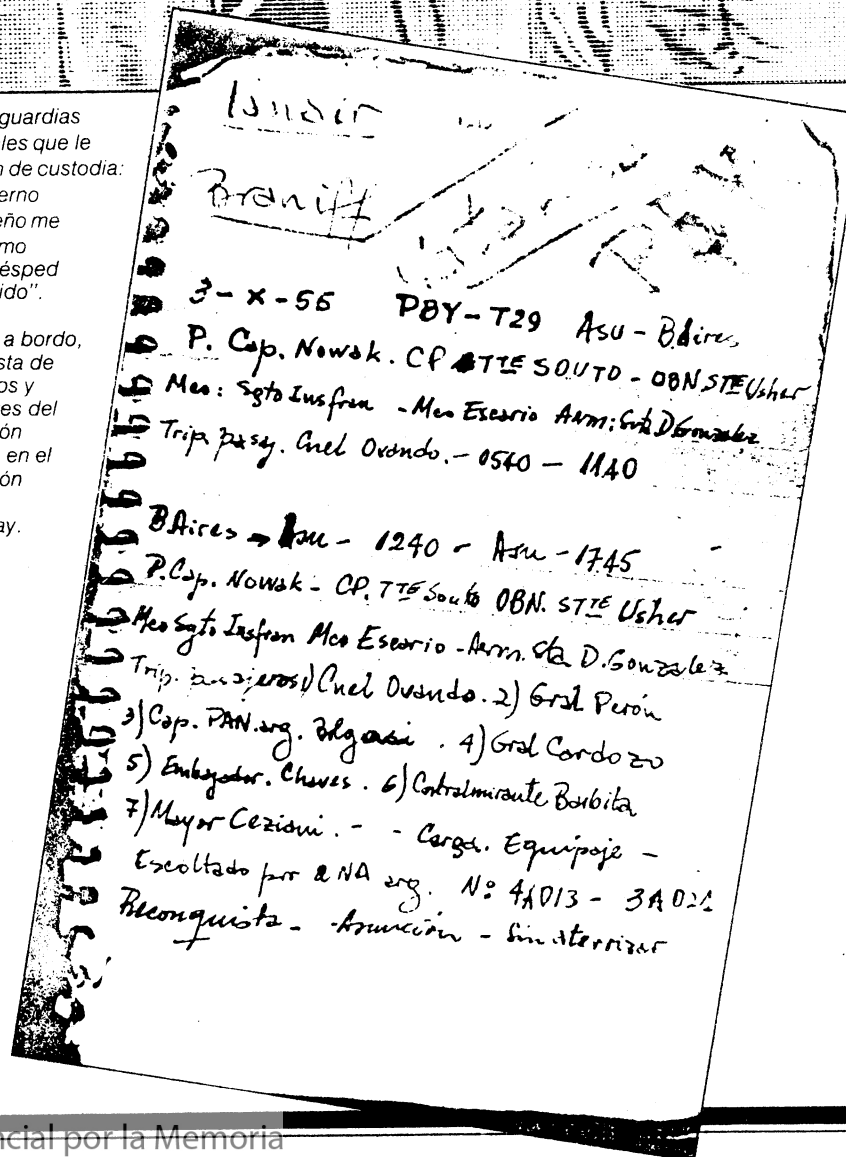 guardias
les que le
de custodia:
erno
eño me
mo
ésped
ido".
a bordo,
sta de
os y
es del
ón
en el
ón
ay.
Braniff
3-X-55 PBY-T29 Asu - BAires
P. Cap. Nowak. CP TTE SOUTO - OBN STE Usher
Mec: Sgto Insfran - Mec Escario Aerm: Srta D Gonzalez
Trip. pasaj. Cnel Ovando. - 0540 - 1140
BAires - Asu - 1240 - Asu - 1745
P. Cap. Nowak - CP. TTE Souto OBN. STTE Usher
Mec Sgto Insfran Mec Escario - Aerm. Sta D. Gonzalez
Trip. pasajeros 1) Cnel Ovando. 2) Gral Perón
3) Cap. PAN. arg. . 4) Gral Cardozo
5) Embajador. Chaves. 6) Contralmirante Barbita
7) Mayor Ceziani. - - Carga. Equipaje -
Escoltado por 2 NA arg. Nº 4A013 - 3A021
Reconquista - Asunción - Sin aterrizar
ncial por la Memoria